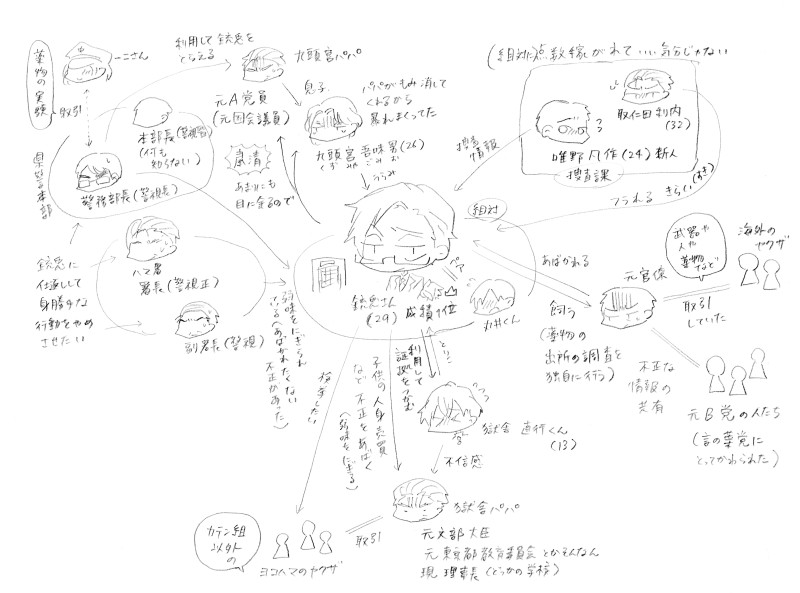 薬物の実験
一二さん
取引
利用して銃兎を
とらえる
九頭宮パパ
元A党員
(元国会議員)
息子
パパがもみ消して
くれるから
暴れまくってた
九頭宮 吾味男(26)
くずみや ごみお
うらみ
粛清
あまりにも
目に余るので
(組対に点数稼がれていい気分じゃない)
取仁田 利内
(32)
唯野 凡作(24) 新人
捜査課
捜査
情報
フラれる
きらい(すき)
県警本部
本部長(警視監)
(何も
知らない)
警務部長(警視長)
銃兎に
仕返しして
身勝手な
行動をやめ
させたい
ハマ署
署長(警視正)
副署長(警視)
弱味をにぎられ
ている(あばかれたくない
不正がある)
組対
ペア
銃兎さん
(29)
成績1位
丸井くん
あばかれる
飼う
(薬物の
出所の調査を
独自に行う)
元官僚
武器や
人や
薬物など
海外の
ヤクザ
取引
していた
不正な
情報の
共有
元B党の人たち
(言の葉党に
とってかわられた)
利用して
証拠をつかむ
とりこ
子供の人身売買
など不正をあばく
(弱味をにぎる)
獄舎 直行くん
(13)
不信感
獄舎パパ
元文部大臣
元東京都教育委員会とかそんなん
現 理事長(どっかの学校)
取引
カテン組
以外の
ヨコハマのヤクザ